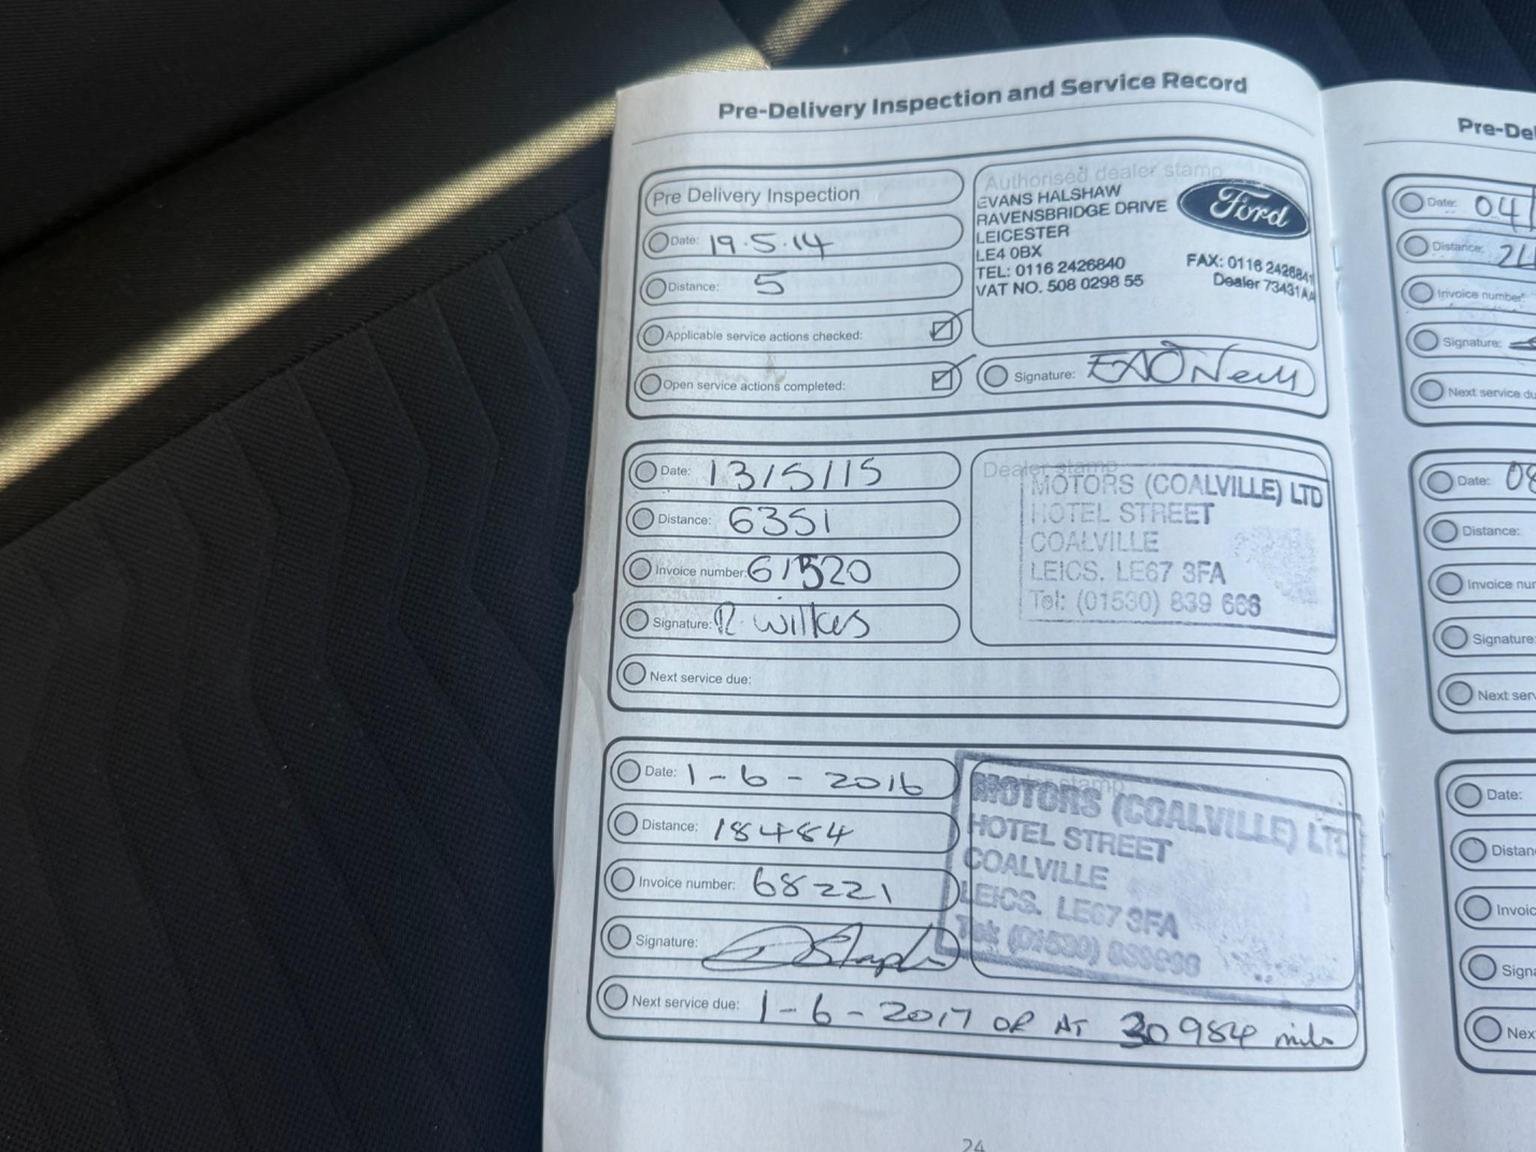 Pre-Delivery Inspection and Service Record
Pre Delivery Inspection
Date: 19.5.14
Distance: 5
Applicable service actions checked:
Open service actions completed:
Authorised dealer stamp
EVANS HALSHAW
RAVENSBRIDGE DRIVE
LEICESTER
LE4 0BX
TEL: 0116 2426840
VAT NO. 508 0298 55
Ford
FAX: 0116 2426841
Dealer 73431AA
Signature:
Date: 13/5/15
Distance: 6351
Invoice number: 61520
Signature: R. Wilkes
Next service due:
Dealer stamp
MOTORS (COALVILLE) LTD
HOTEL STREET
COALVILLE
LEICS. LE67 3FA
Tel: (01530) 839 666
Date: 1-6-2016
Distance: 18484
Invoice number: 68221
Signature:
Next service due: 1-6-2017 OR AT 30984 miles
MOTORS (COALVILLE) LTD
HOTEL STREET
COALVILLE
LEICS. LE67 3FA
Tel: (01530)
24
Pre-De
Date: 04/
Distance:
Invoice number:
Signature:
Next service du
Date: 08
Distance:
Invoice nur
Signature:
Next serv
Date:
Distan
Invoic
Signa
Nex